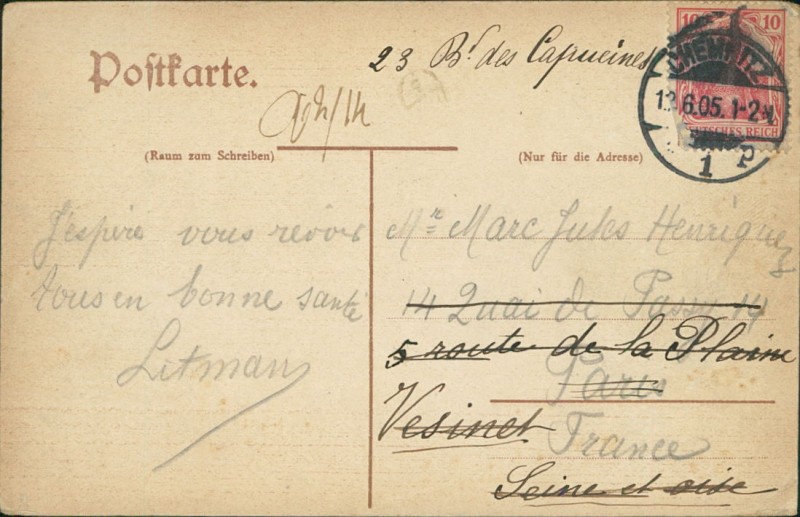 Postkarte.
23 Bd des Capucines
10 10
CHEMNITZ
6.05. 1-2
1 p
DEUTSCHES REICH
(Raum zum Schreiben)
(Nur für die Adresse)
J'espère vous revoir
tous en bonne santé
Litman
Mr Marc Jules Henriquez
14 Quai de Passy 14
5 route de la Plaine
Paris
Vesinet
France
Seine et oise